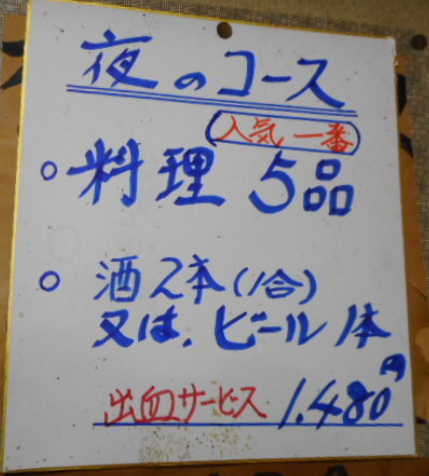 夜のコース
人気一番
料理 5品
酒2本(1合)
又は、ビール1本
出血サービス 1.480円